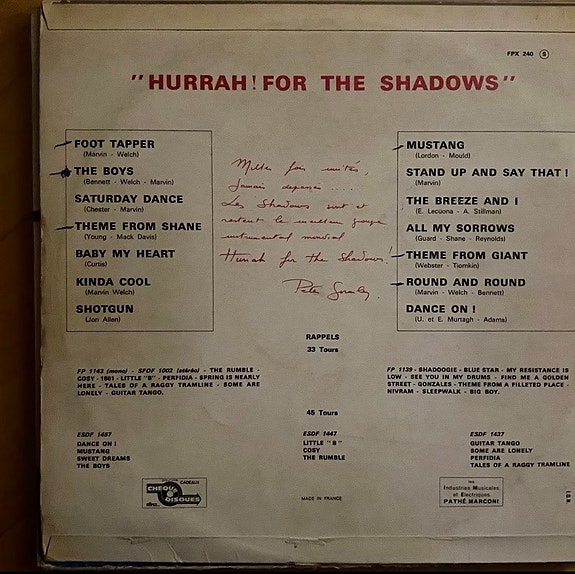 FPX 240 S
"HURRAH! FOR THE SHADOWS"
FOOT TAPPER
(Marvin - Welch)
THE BOYS
(Bennett - Welch - Marvin)
SATURDAY DANCE
(Chester - Marvin)
THEME FROM SHANE
(Young - Mack Davis)
BABY MY HEART
(Curtis)
KINDA COOL
(Marvin Welch)
SHOTGUN
Lion Allen)
Milles fois imités,
jamais dépassés ....
Les Shadows sont et
restent le meilleur groupe
instrumental mondial
Hurrah for the Shadows!
MUSTANG
(Lordon - Mould)
STAND UP AND SAY THAT !
(Marvin)
THE BREEZE AND I
(E. Lecuona - A. Stillman)
ALL MY SORROWS
(Guard - Shane - Reynolds)
THEME FROM GIANT
(Webster - Tiomkin)
ROUND AND ROUND
(Marvin - Welch - Bennett)
DANCE ON !
(U. et E. Murtagh - Adams)
RAPPELS
33 Tours
FP 1142 (mono) - SFOF 1002 (stéréo) - THE RUMBLE -
COSY - 1861 - LITTLE "B" - PERFIDIA - SPRING IS NEARLY
HERE - TALES OF A RAGGY TRAMLINE - SOME ARE
LONELY - GUITAR TANGO.
FP 1139 - SHADOOGIE - BLUE STAR - MY RESISTANCE IS
LOW - SEE YOU IN MY DRUMS - FIND ME A GOLDEN
STREET - GONZALES - THEME FROM A FILLETED PLACE -
NIVRAM - SLEEPWALK - BIG BOY.
45 Tours
ESDF 1487
DANCE ON !
MUSTANG
SWEET DREAMS
THE BOYS
ESDF 1447
LITTLE "B"
COSY
THE RUMBLE
ESDF 1437
GUITAR TANGO
SOME ARE LONELY
PERFIDIA
TALES OF A RAGGY TRAMLINE
CADEAUX
CHÈQUE
DISQUES
MADE IN FRANCE
les
Industries Musicales
et Electriques
PATHÉ MARCONI